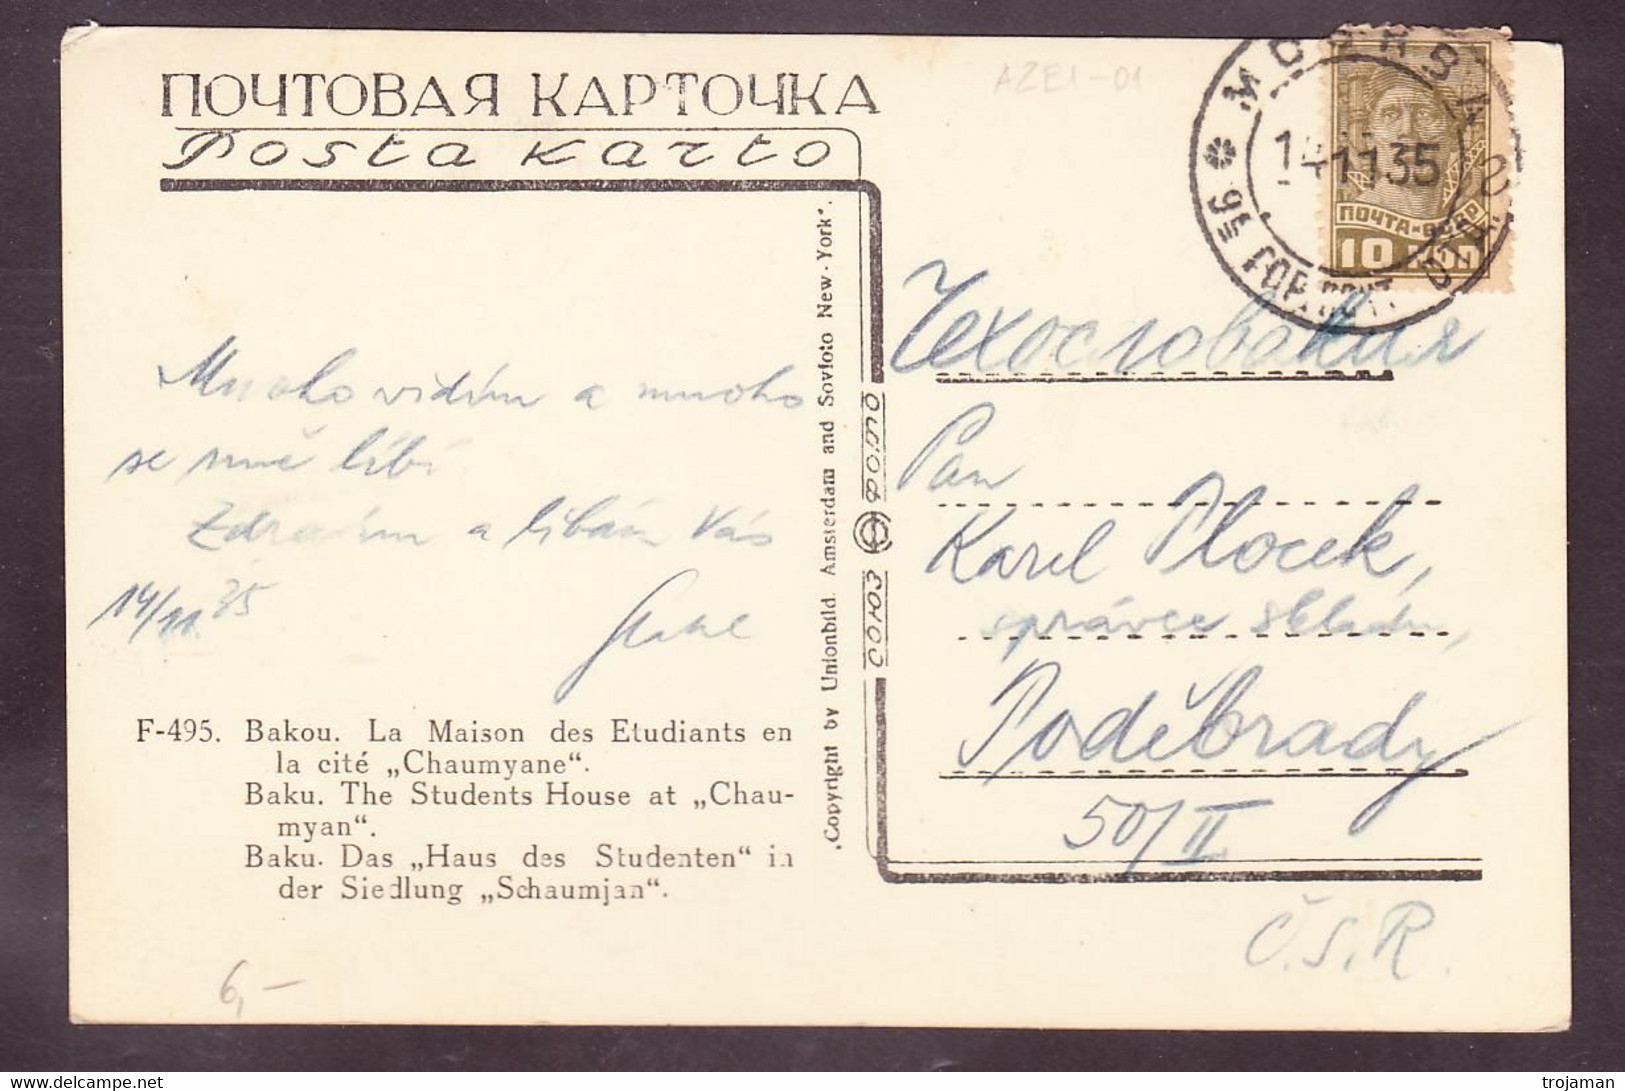 ПОЧТОВАЯ КАРТОЧКА
Posta karto
AZE1-01
МОСКВА
14 11 35
ПОЧТА СССР
10 КОП
Mnoho vidím a mnoho
se mně líbí
Zdravím a líbám Vás
14/11. 35
F-495. Bakou. La Maison des Etudiants en
la cité „Chaumyane“.
Baku. The Students House at „Chau-
myan“.
Baku. Das „Haus des Studenten“ in
der Siedlung „Schaumjan“.
6,–
„Copyright by Unionbild. Amsterdam and Sovfoto New-York“.
союз фото
Чехословакия
Pan
Karel Plocek,
správce skladu,
Poděbrady
50/II
Č.S.R.
trojaman